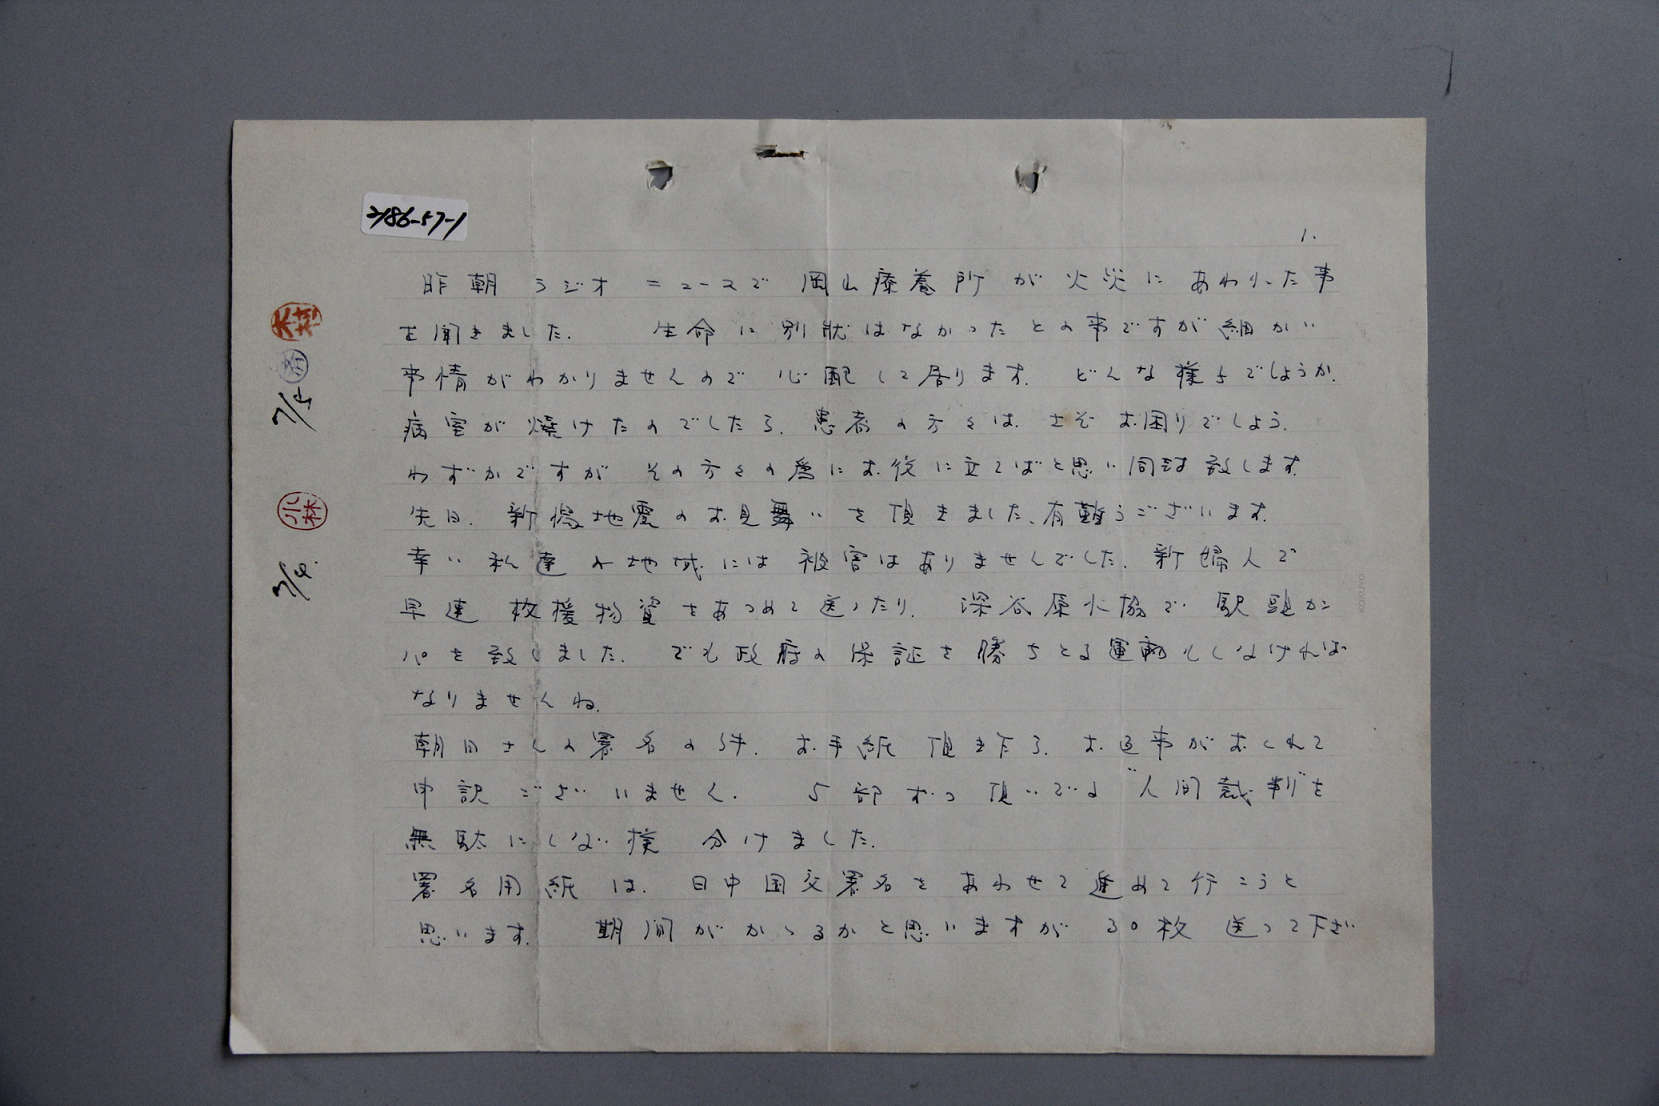 2186-57-1
1.
昨朝ラジオニュースで 岡山療養所が火災にあわれた事
を聞きました. 生命に別状はなかったとの事ですが細かい
事情がわかりませんので 心配して居ります. どんな様子でしょうか.
病室が焼けたのでしたら. 患者の方々は. さぞお困りでしょう.
わずかですが その方々の為にお役に立てばと思い同封致します.
先日. 新潟地震のお見舞いを頂きました、有難うございます.
幸い私達の地域には被害はありませんでした. 新婦人で
早速 救援物資をあつめて送ったり. 深谷原水協で 駅頭カン
パを致しました. でも政府の保証を勝ちとる運動もしなければ
なりませんね.
朝日さんの署名の件. お手紙頂き乍ら. お返事がおくれて
申訳ございません. 5部ずつ頂いてる"人間裁判"を
無駄にしない様 分けました.
署名用紙は. 日中国交署名をあわせて進めて行こうと
思います. 期間がかゝるかと思いますが 30枚 送って下さい
大村
7/5
小林
7/4.